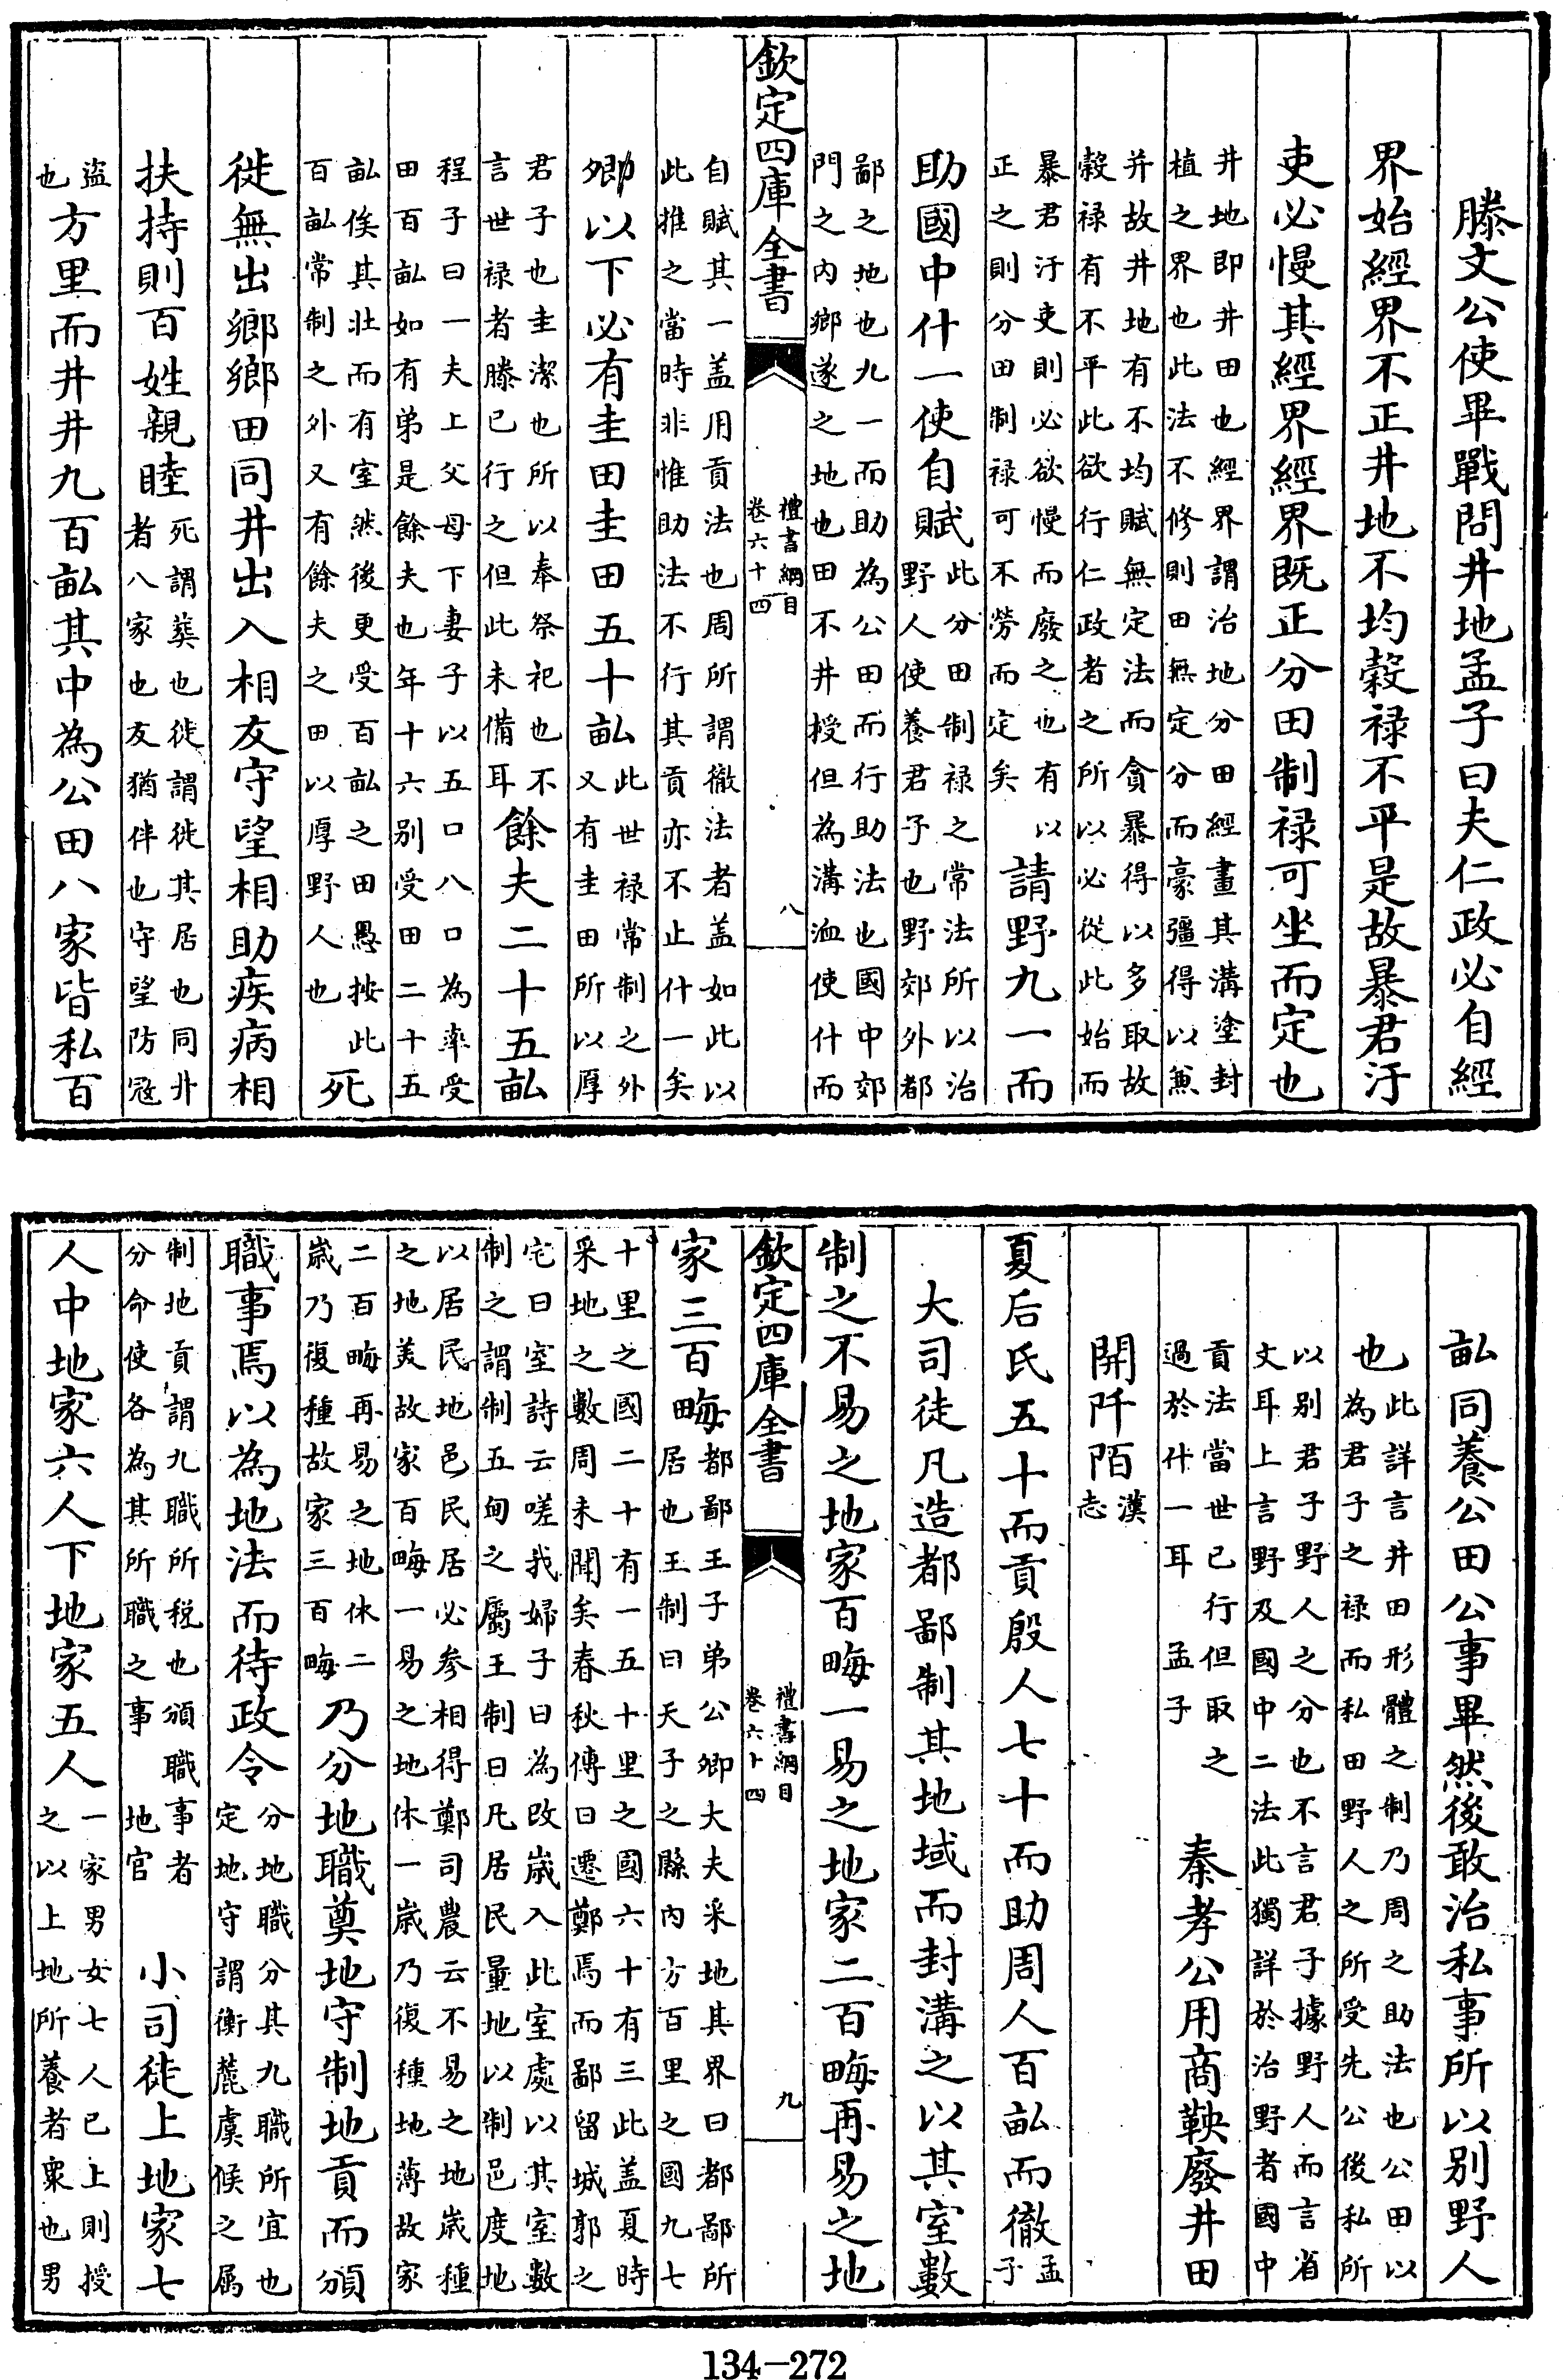 滕文公使畢戰問井地孟子曰夫仁政必自經
界始經界不正井地不均穀禄不平是故暴君汙
吏必慢其經界經界既正分田制禄可坐而定也
井地即井田也經界謂治地分田經畫其溝塗封
植之界也此法不修則田無定分而豪彊得以兼
并故井地有不均賦無定法而貪暴得以多取故
穀禄有不平此欲行仁政者之所以必從此始而
暴君汙吏則必欲慢而廢之也有以
正之則分田制禄可不勞而定矣
請野九一而
助國中什一使自賦
此分田制禄之常法所以治
野人使養君子也野郊外都
鄙之地也九一而助為公田而行助法也國中郊
門之内鄉遂之地也田不井授但為溝洫使什而
欽定四庫全書
禮書綱目
卷六十四
八
自賦其一盖用貢法也周所謂徹法者盖如此以
此推之當時非惟助法不行其貢亦不止什一矣
卿以下必有圭田圭田五十畝
此世禄常制之外
又有圭田所以厚
君子也圭潔也所以奉祭祀也不
言世禄者滕已行之但此未備耳
餘夫二十五畝
程子曰一夫上父母下妻子以五口八口為率受
田百畝如有弟是餘夫也年十六别受田二十五
畝俟其壯而有室然後更受百畝之田愚按此
百畝常制之外又有餘夫之田以厚野人也
死
徙無出鄉鄉田同井出入相友守望相助疾病相
扶持則百姓親睦
死謂葬也徙謂徙其居也同井
者八家也友猶伴也守望防冦
盗
也
方里而井井九百畝其中為公田八家皆私百
畝同養公田公事畢然後敢治私事所以别野人
也
此詳言井田形體之制乃周之助法也公田以
為君子之禄而私田野人之所受先公後私所
以别君子野人之分也不言君子據野人而言省
文耳上言野及國中二法此獨詳於治野者國中
貢法當世已行但取之
過於什一耳 孟子
秦孝公用商鞅廢井田
開阡陌
漢
志
夏后氏五十而貢殷人七十而助周人百畝而徹
孟
子
大司徒凡造都鄙制其地域而封溝之以其室數
制之不易之地家百晦一易之地家二百晦再易之地
欽定四庫全書
禮書綱目
卷六十四
九
家三百晦
都鄙王子弟公卿大夫采地其界曰都鄙所
居也王制曰天子之縣内方百里之國九七
十里之國二十有一五十里之國六十有三此盖夏時
采地之數周未聞矣春秋傳曰遷鄭焉而鄙留城郭之
宅曰室詩云嗟我婦子曰為改歲入此室處以其室數
制之謂制五甸之屬王制曰凡居民量地以制邑度地
以居民地邑民居必参相得鄭司農云不易之地歲種
之地美故家百晦一易之地休一歲乃復種地薄故家
二百晦再易之地休二
歲乃復種故家三百晦
乃分地職奠地守制地貢而頒
職事焉以為地法而待政令
分地職分其九職所宜也
定地守謂衡麓虞候之属
制地貢謂九職所税也頒職事者
分命使各為其所職之事 地官
小司徒上地家七
人中地家六人下地家五人
一家男女七人已上則授
之以上地所養者衆也男
134-272